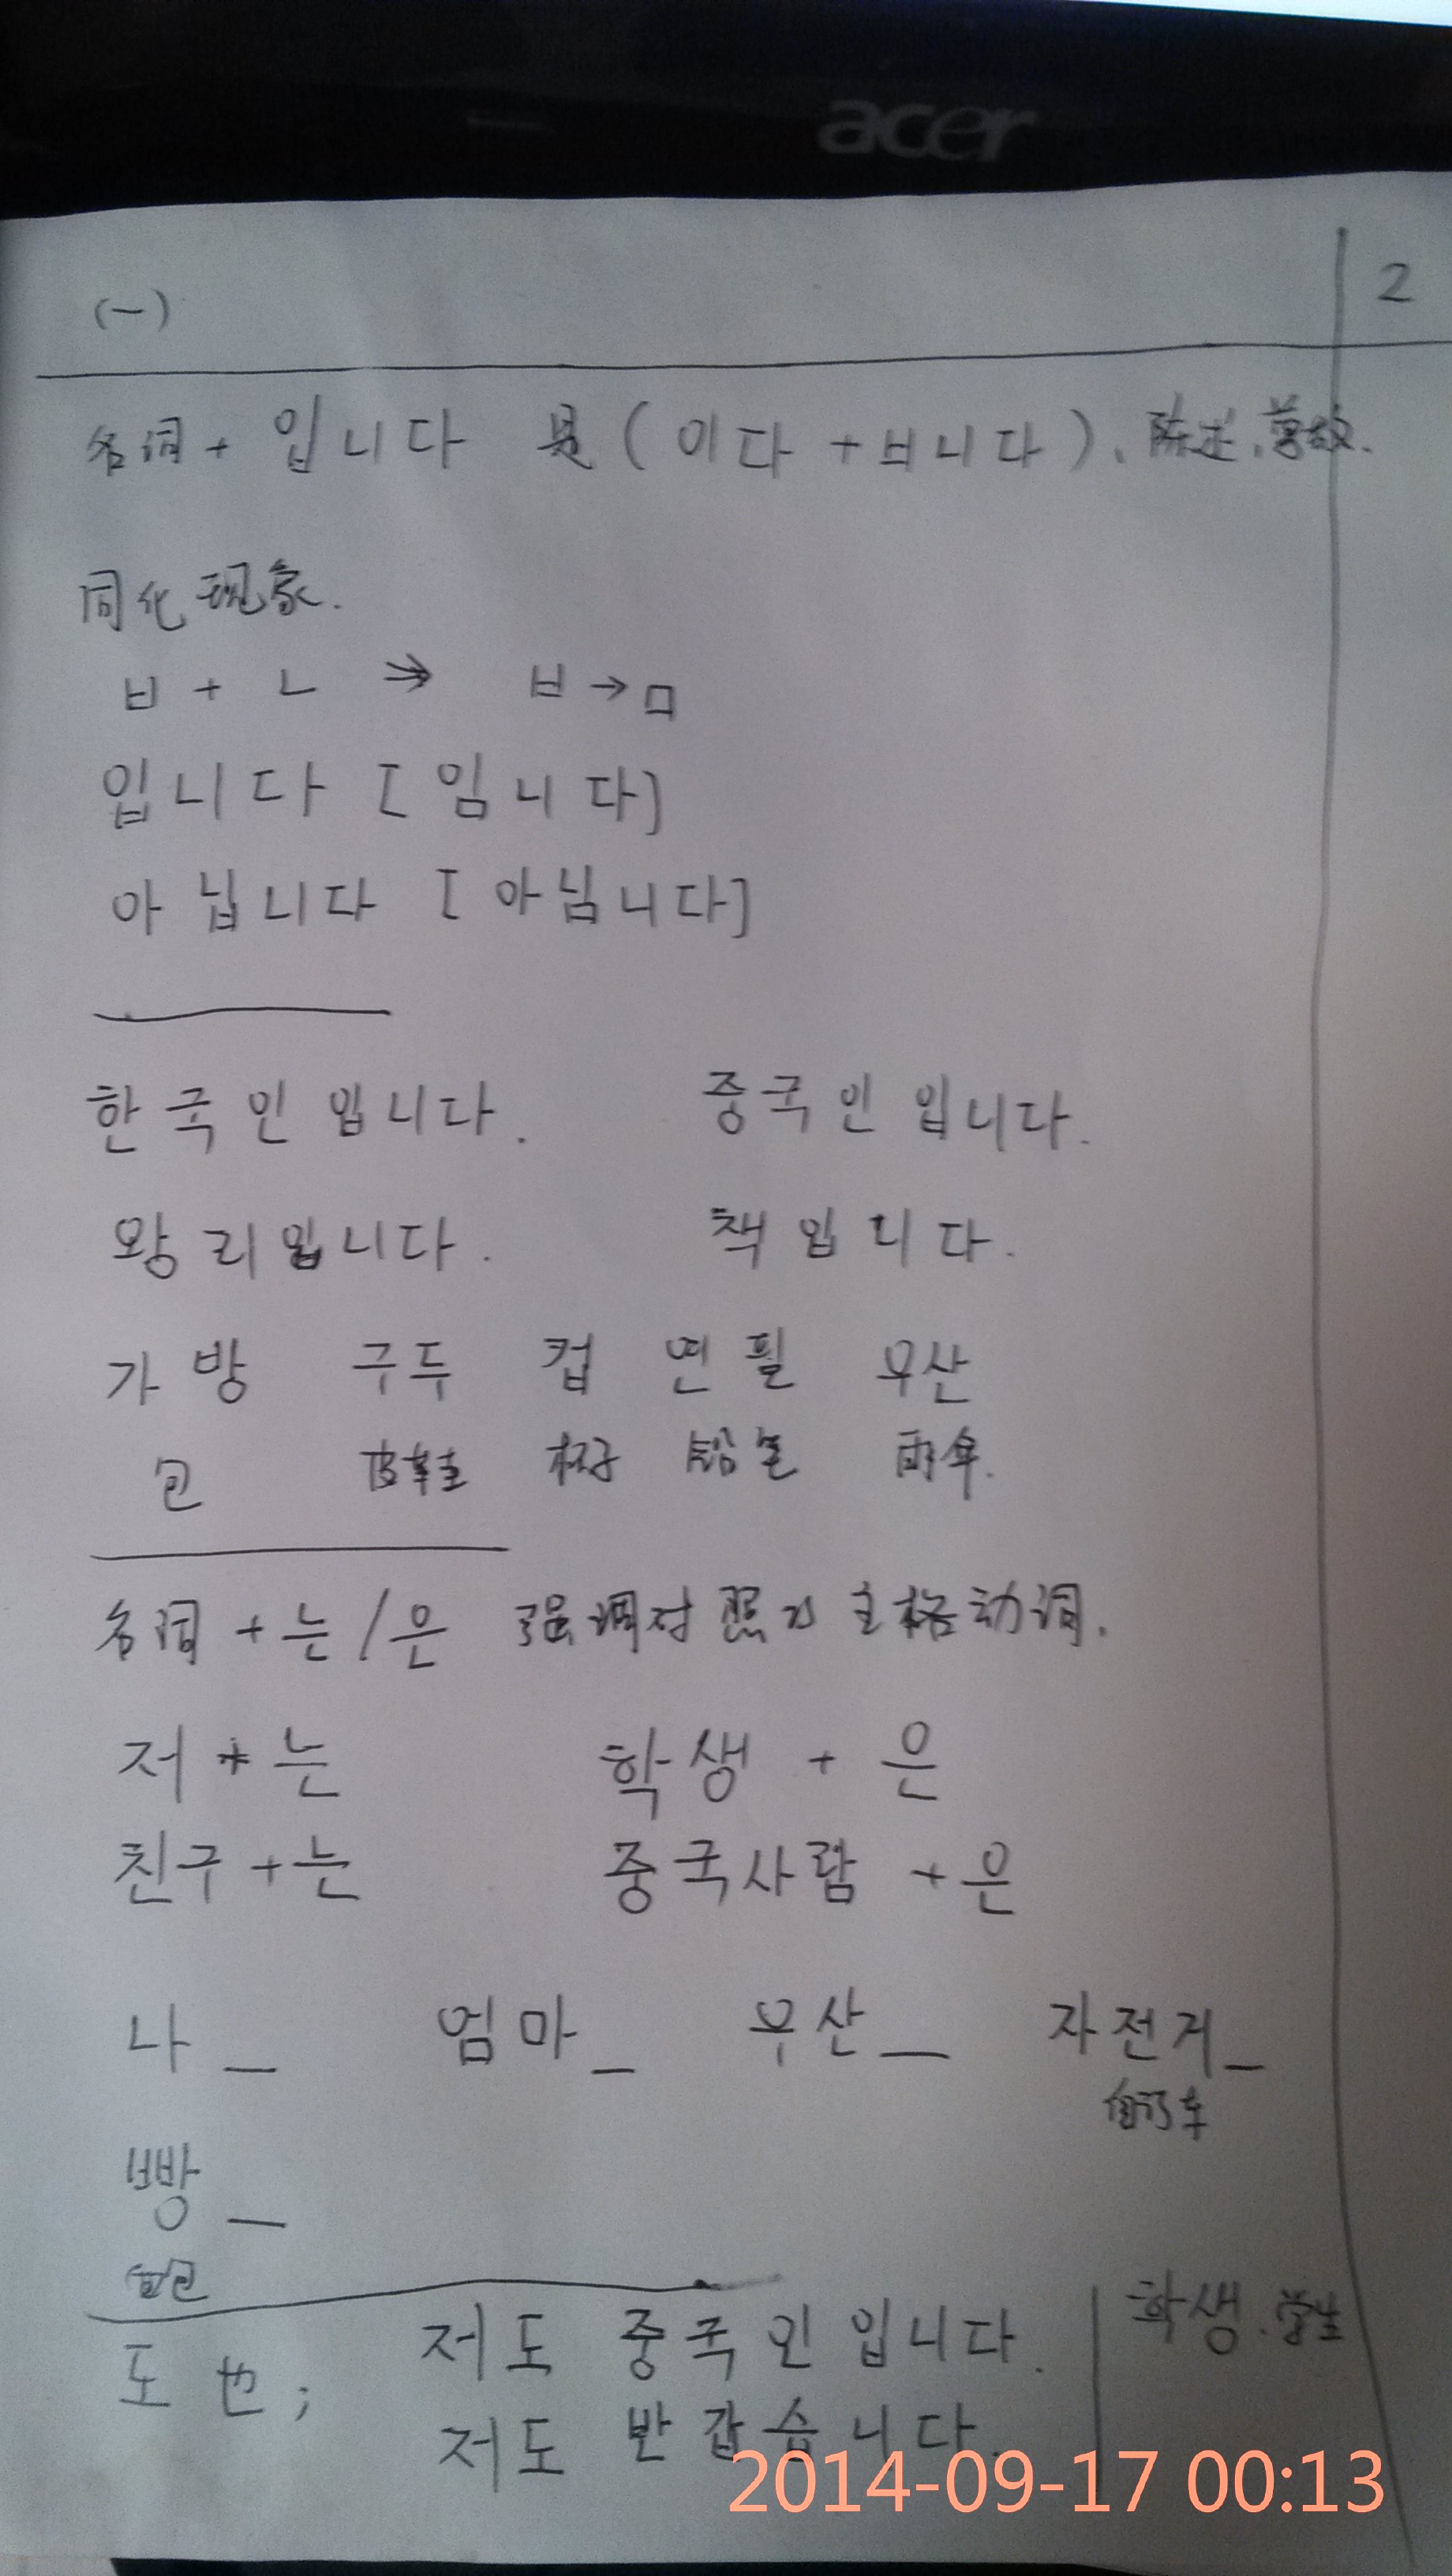 acer
(一) 2
名词 + 입니다 是 (이다 + ㅂ니다). 陈述, 尊敬.
同化现象.
ㅂ + ㄴ ⇒ ㅂ → ㅁ
입니다 [임니다]
아닙니다 [아님니다]
한국인입니다. 중국인입니다.
왕리입니다. 책입니다.
가방 구두 컵 연필 우산
包 皮鞋 杯子 铅笔 雨伞.
名词 + 는 / 은 强调对照的主格动词.
저 + 는 학생 + 은
친구 + 는 중국사람 + 은
나 _ 엄마 _ 우산 _ 자전거 _
自行车
빵 _
面包
도 也; 저도 중국인입니다. 학생. 学生
저도 반갑습니다.
2014-09-17 00:13